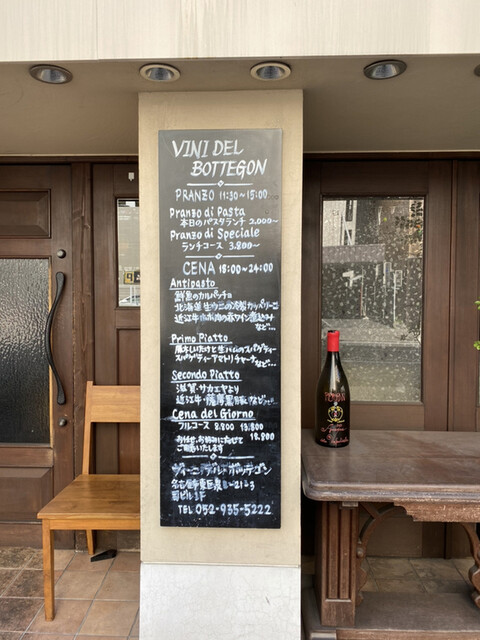 VINI DEL
BOTTEGON
PRANZO 11:30~15:00
Pranzo di Pasta
本日のパスタランチ 2.000~
Pranzo di Speciale
ランチコース 3.800~
CENA 18:00~24:00
Antipasto
鮮魚のカルパッチョ
北海道生ウニの冷製カッペリーニ
近江牛ホホ肉の赤ワイン煮込み
など…
Primo Piatto
生ハムのスパゲティー
スパゲティーアマトリチャーナなど…
Secondo Piatto
滋賀・サカエヤより
近江牛・薩摩黒豚など
Cena del Giorno
フルコース 8.800 13.800
18.800
お任せ、お好みに応じて
ご用意いたします
ヴィーニ・デル・ボッテゴン
名古屋市東区泉 -21-3
ビル1F
TEL 052-935-5222